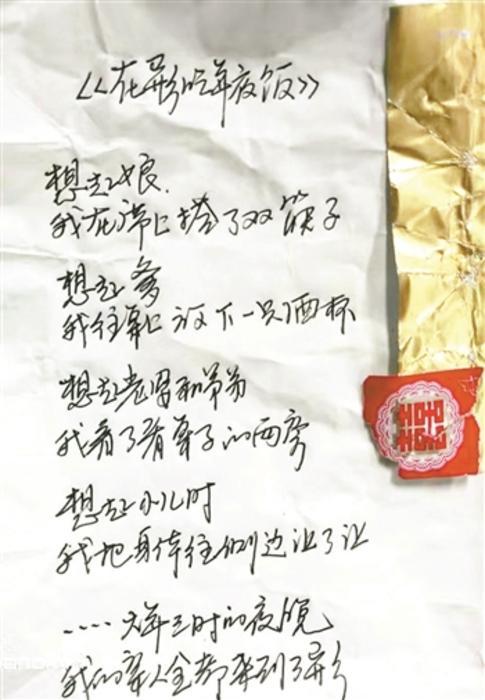 《在异乡吃年夜饭》
想起娘
我在席上搭了双筷子
想起爹
我往桌上 下一只酒杯
想起老 和弟弟
我看了看桌子的两旁
想起小儿时
我把身体往侧边让了让
……大年三时的夜晚
我的 人全都来到了异乡
囍